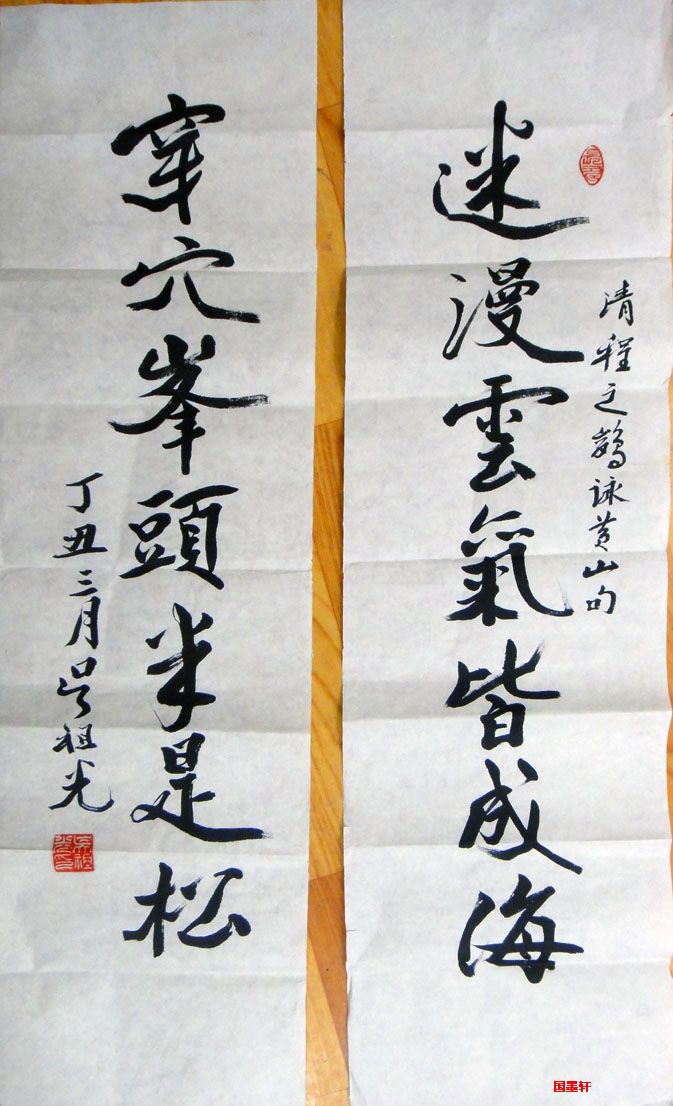 迷漫雲氣皆成海
清程之鵕詠黄山句
穿穴峯頭半是松
丁丑三月吴祖光
吴祖光印
国墨轩